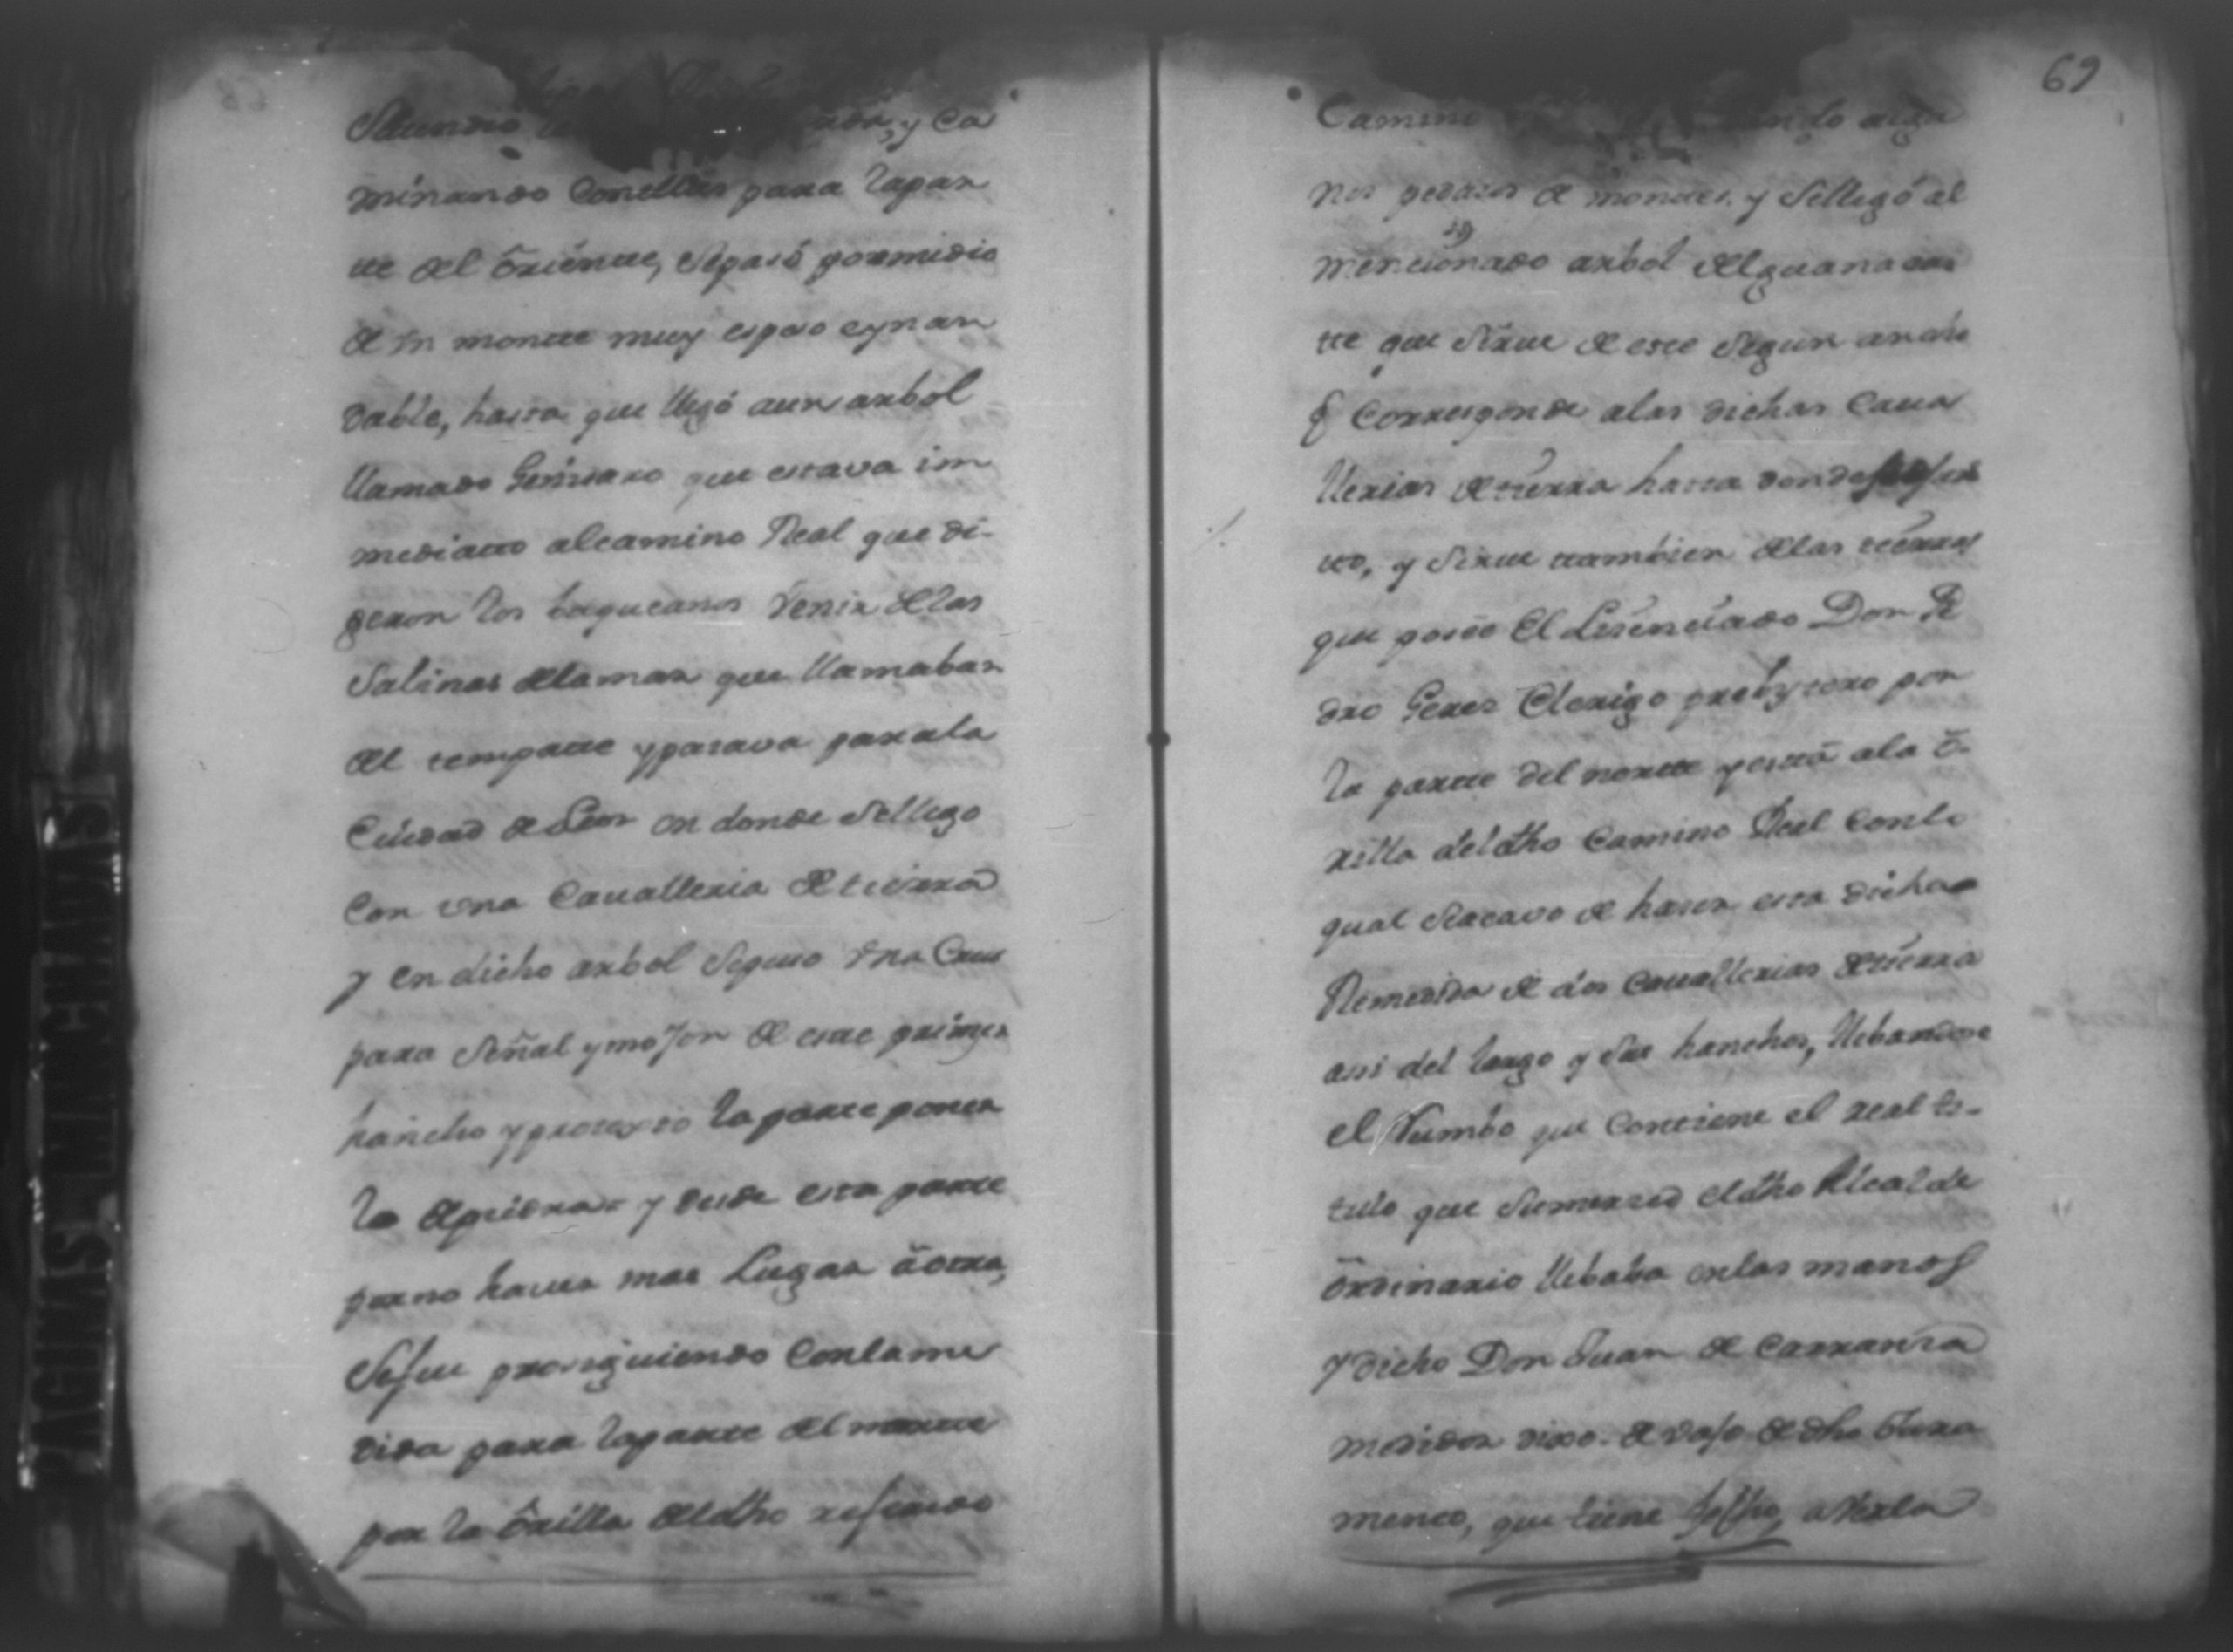 y Ca
minando Conellas para lapar
te del oriente, Sepasó pormedio
de vn monte muy espeso eynan
dable, hasta que llegó aun arbol
llamado Genisaro que estava im
mediatto alcamino Real que di-
geron los baqueanos venir delas
Salinas delamar que llamaban
del tempatte ypasava parala
Ciudad de Leon en donde Sellego
Con vna Cavalleria detierra
y en dicho arbol Sepuso vna Cruz
para Señal ymojon de este primer
hancho yprotexto la parte poner
la depiedra- y desde esta parte
porno haver mas Lugar aotra,
Sefue prosiguiendo Conlame
dida para laparte del norte
por la orilla deldho referido
69
Camino algu
nos pedazos de montes. y Sellegó al
mencionado arbol delguanacas
te que Sirve de este Segun ancho
q Corresponde alas dichas Cava
llerias detierra hasta donde
tto, y Sirve tambien delas tierras
que posee El Lisenciado Don Pe
dro Geres Clerigo presbytero por
la parte del norte yestta ala o-
rilla deldho Camino Real Conlo
qual Seacavo de haser esta dicha
Remedida de dos Cavallerias detierra
asi del largo y Sus hanchos, llebandose
el Rumbo que Contiene el real ti-
tulo que Sumerced eldho Alcalde
ordinario llebaba enlas manos
Y dicho Don Juan de Carranza
medidor dixo. devajo de dho Jura
mento, que tiene fecho, averla